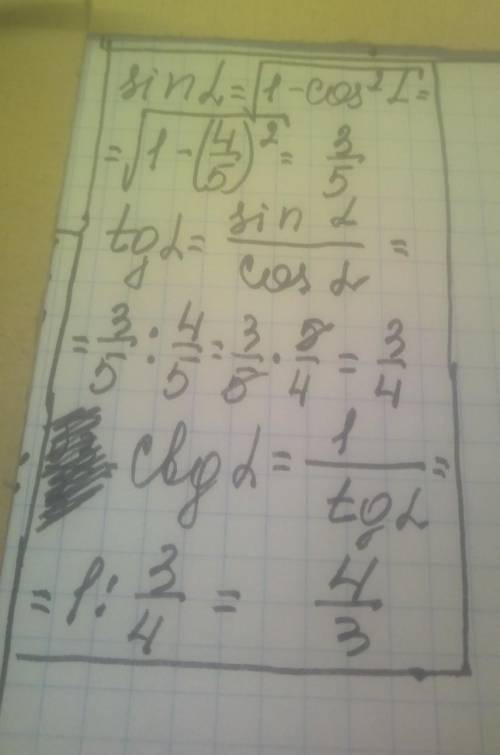 sin α = √(1 - cos² α) =
= √(1 - (4/5)²) = 3/5
tg α = sin α / cos α =
= 3/5 : 4/5 = 3/5 · 5/4 = 3/4
ctg α = 1 / tg α =
= 1 : 3/4 = 4/3